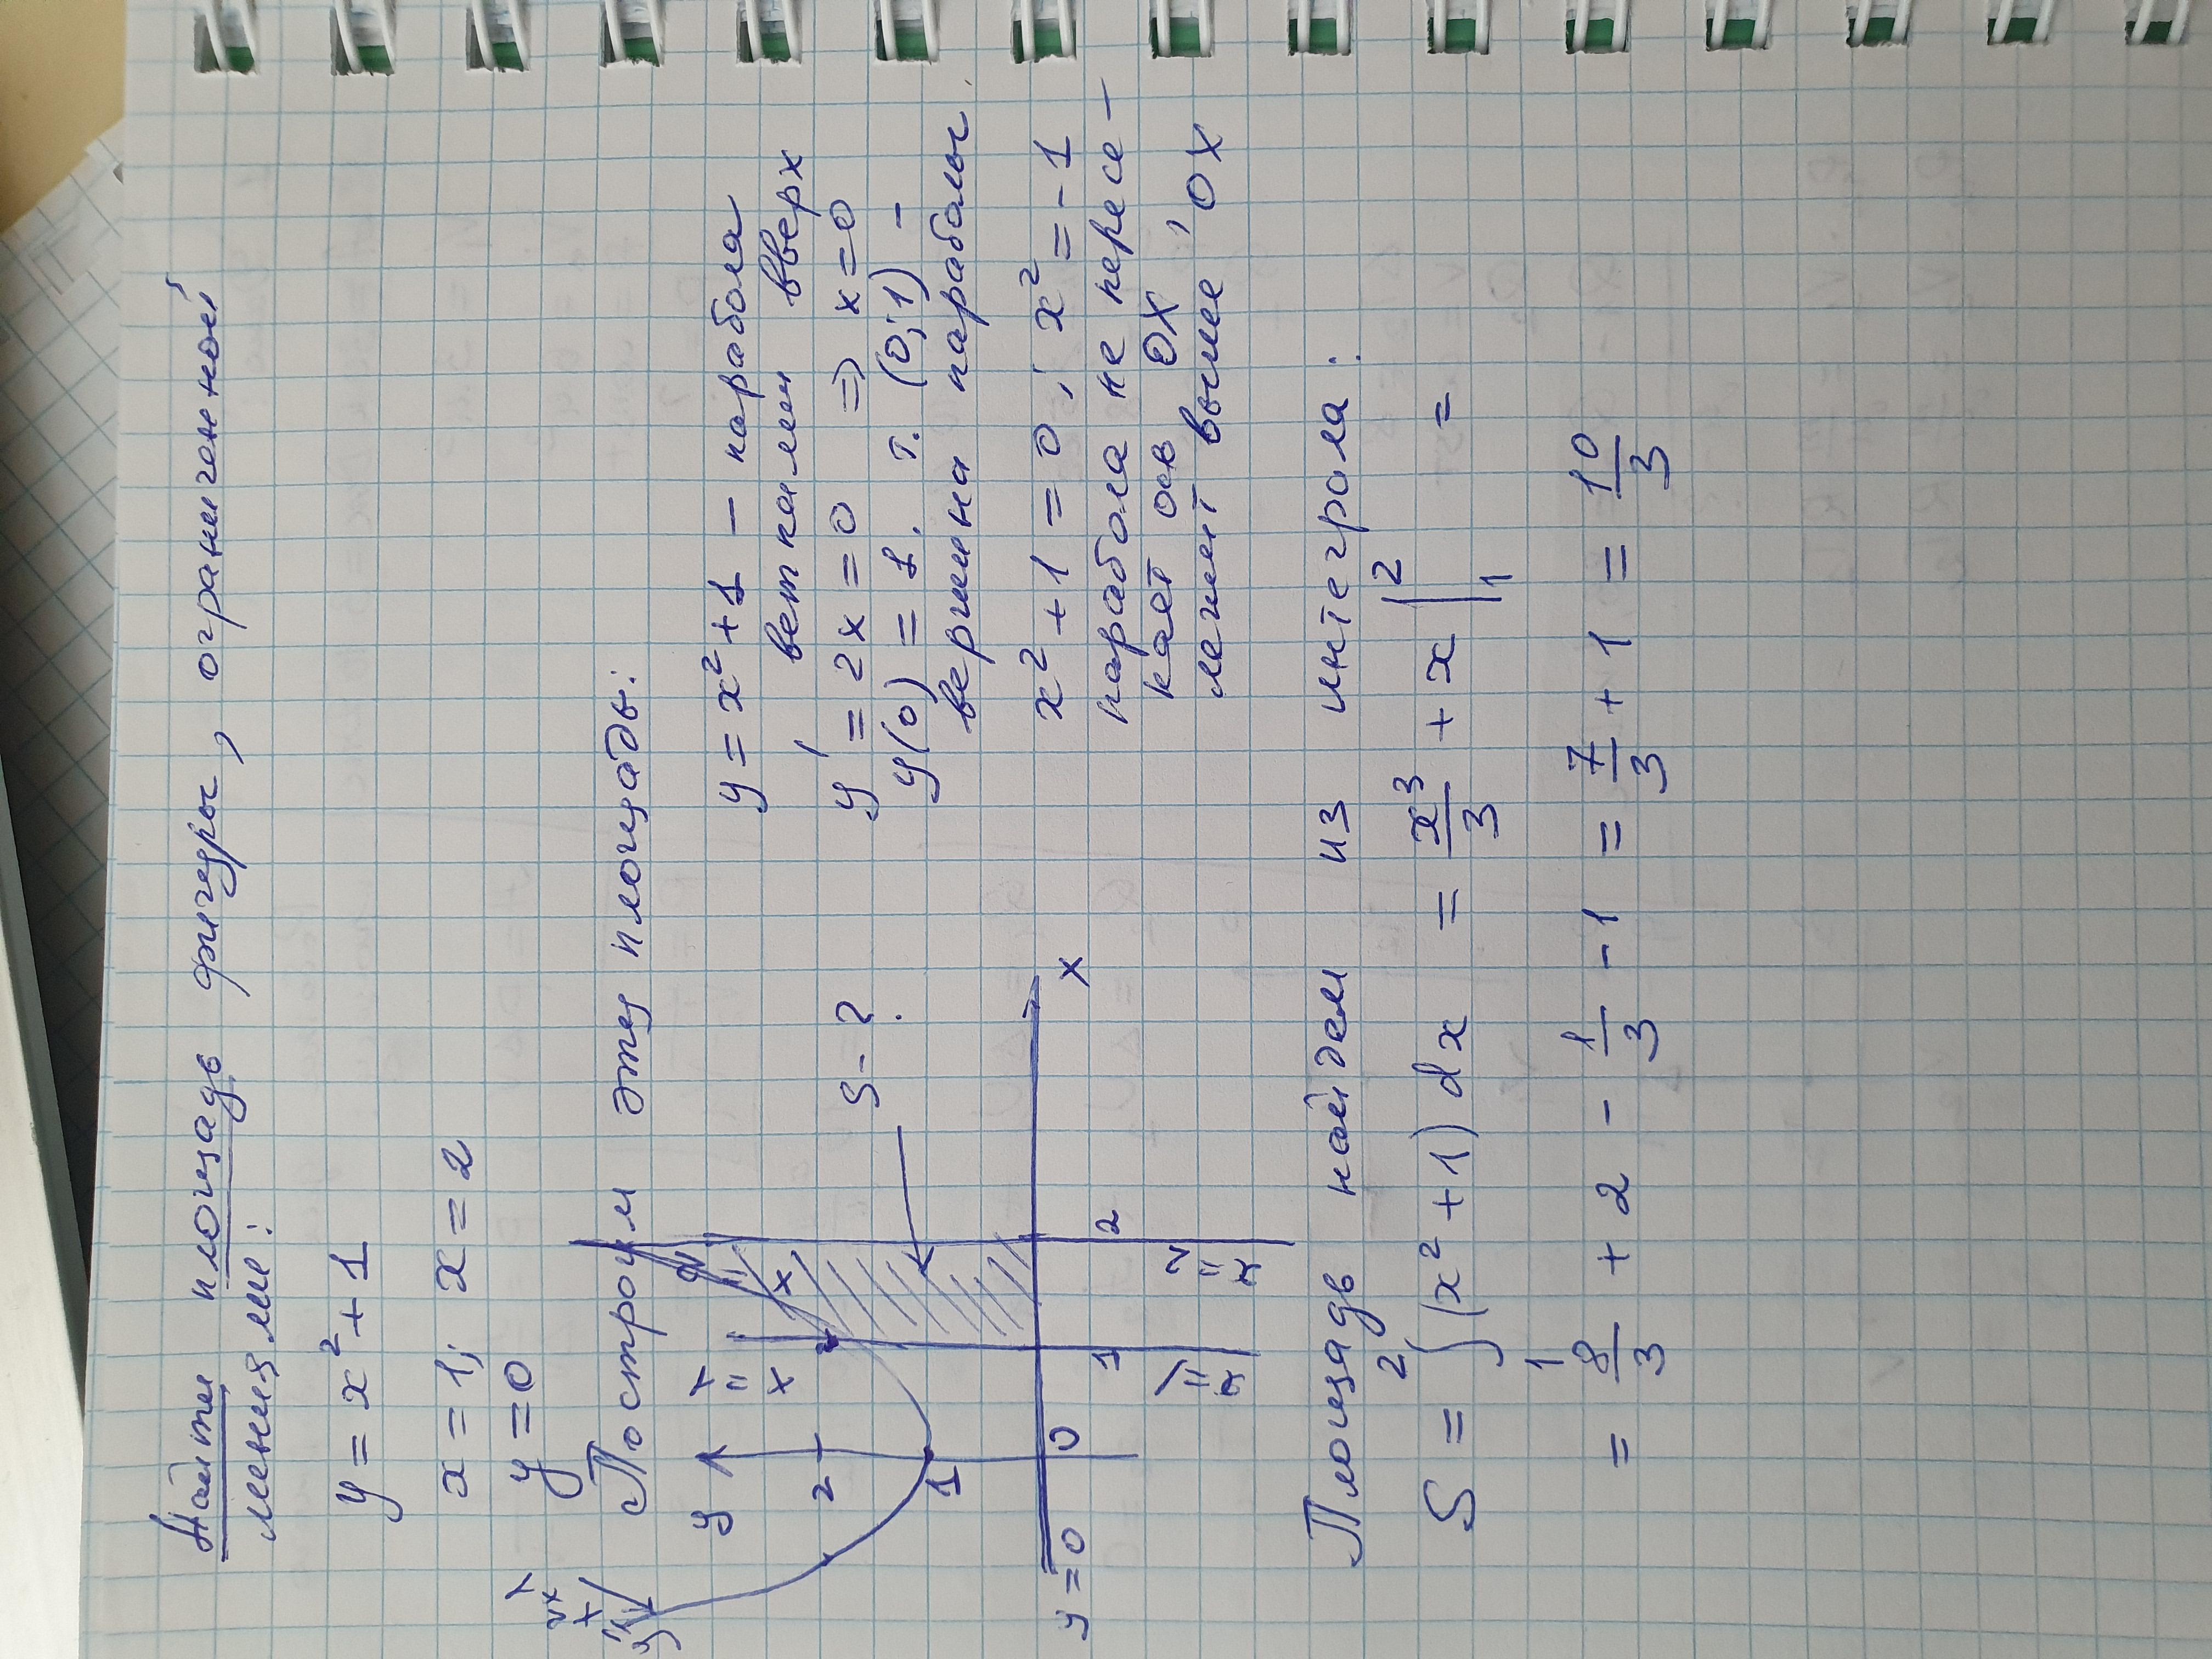 Найти площадь фигуры, ограниченной
линиями:
y = x² + 1
x = 1; x = 2
y = 0
Построим эту площадь:
y = x² + 1 – парабола
ветками вверх
y' = 2x = 0 => x = 0
y(0) = 1. т. (0; 1) –
вершина параболы.
x² + 1 = 0; x² = -1
парабола не пересе-
кает ось OX,
лежит выше OX
y = x² + 1
y
x = 1
x = 2
S - ?
2
1
0
1
2
x
y = 0
x = 1
x = 2
Площадь найдем из интеграла:
S = ∫₁² (x² + 1) dx = x³/3 + x |₁² =
= 8/3 + 2 - 1/3 - 1 = 7/3 + 1 = 10/3